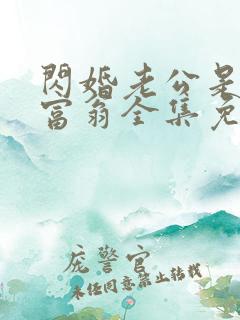 閃婚老公是
富翁全集免
庞警官
未任同意禁止转载